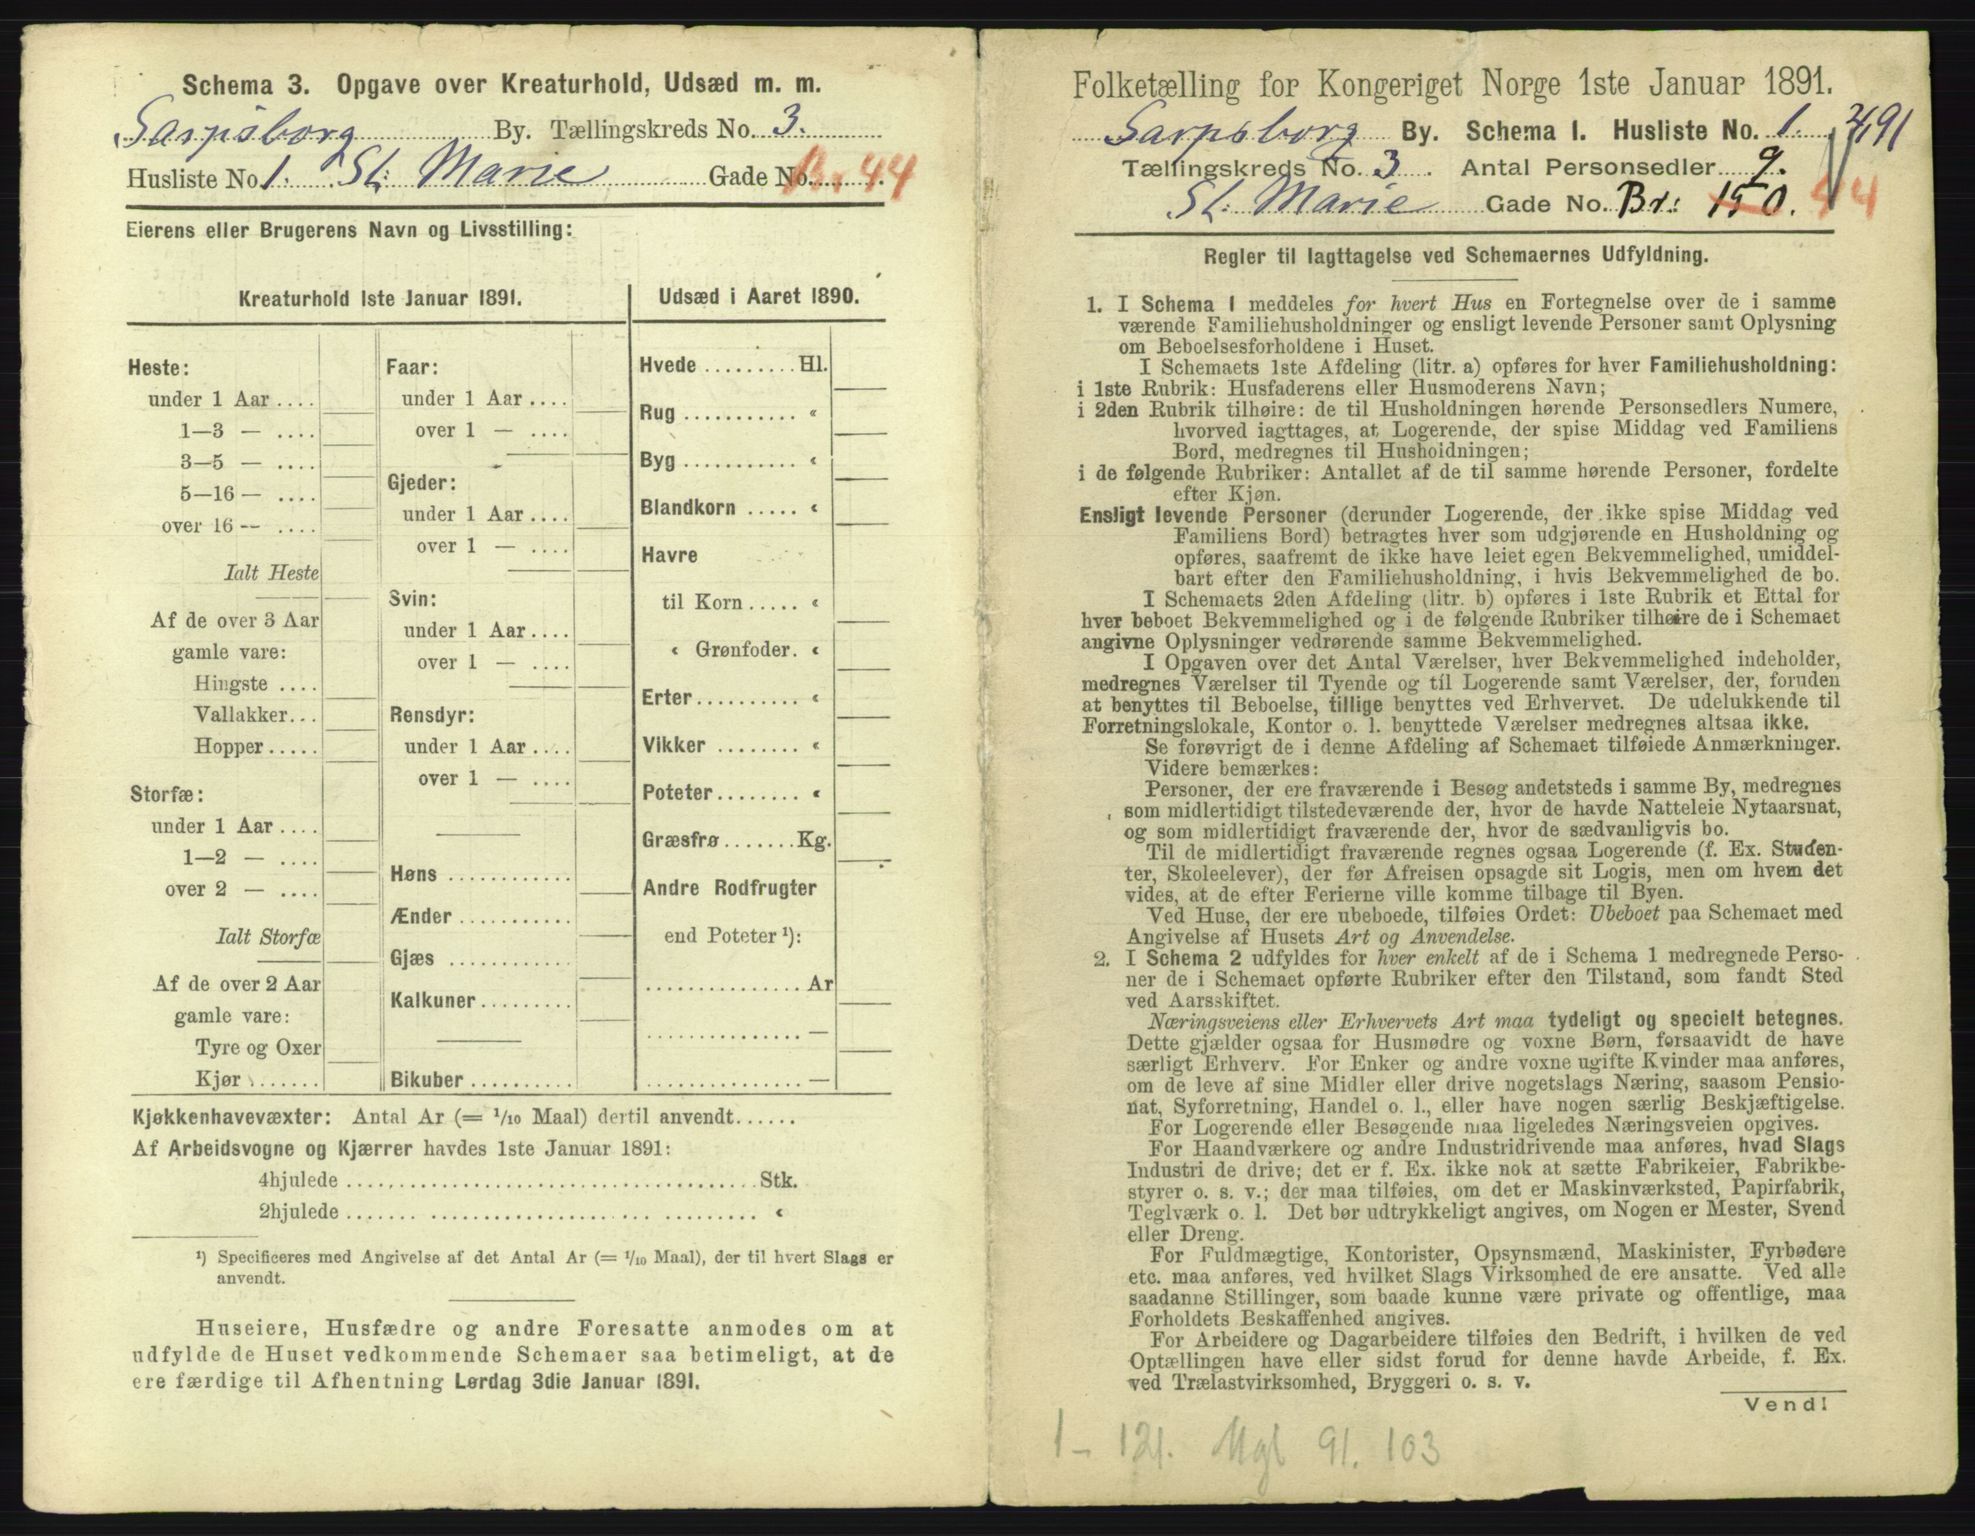 Schema 3. Opgave over Kreaturhold, Udsæd m. m.
Sarpsborg By. Tællingskreds No. 3.
Husliste No. 1. St. Marie Gade No. 44
Eierens eller Brugerens Navn og Livsstilling:
Kreaturhold 1ste Januar 1891.
Heste:
under 1 Aar ....
1—3 — ....
3—5 — ....
5—16 — ....
over 16 — ....
Ialt Heste
Af de over 3 Aar
gamle vare:
Hingste ....
Vallakker...
Hopper.....
Storfæ:
under 1 Aar ....
1—2 — ....
over 2 — ....
Ialt Storfæ
Af de over 2 Aar
gamle vare:
Tyre og Oxer
Kjør ......
Faar:
under 1 Aar ....
over 1 — ....
Gjeder:
under 1 Aar ....
over 1 — ....
Svin:
under 1 Aar ....
over 1 — ....
Rensdyr:
under 1 Aar ....
over 1 — ....
Høns ...........
Ænder ..........
Gjæs ...........
Kalkuner ........
Bikuber .........
Udsæd i Aaret 1890.
Hvede ......... Hl.
Rug ........... «
Byg ........... «
Blandkorn ..... «
Havre
til Korn ..... «
« Grønfoder. «
Erter .......... «
Vikker ........ «
Poteter ........ «
Græsfrø ....... Kg.
Andre Rodfrugter
end Poteter ¹):
............... Ar
............... —
............... —
Kjøkkenhavevæxter: Antal Ar (= 1/10 Maal) dertil anvendt......
Af Arbeidsvogne og Kjærrer havdes 1ste Januar 1891:
4hjulede .................................... Stk.
2hjulede .................................... «
¹) Specificeres med Angivelse af det Antal Ar (= 1/10 Maal), der til hvert Slags er
anvendt.
Huseiere, Husfædre og andre Foresatte anmodes om at
udfylde de Huset vedkommende Schemaer saa betimeligt, at de
ere færdige til Afhentning Lørdag 3die Januar 1891.
Folketælling for Kongeriget Norge 1ste Januar 1891.
Sarpsborg By. Schema I. Husliste No. 1.
Tællingskreds No. 3. Antal Personsedler 9.
St. Marie Gade No. Br: 150. 44
Regler til Iagttagelse ved Schemaernes Udfyldning.
1. I Schema 1 meddeles for hvert Hus en Fortegnelse over de i samme
værende Familiehusholdninger og ensligt levende Personer samt Oplysning
om Beboelsesforholdene i Huset.
I Schemaets 1ste Afdeling (litr. a) opføres for hver Familiehusholdning:
i 1ste Rubrik: Husfaderens eller Husmoderens Navn;
i 2den Rubrik tilhøire: de til Husholdningen hørende Personsedlers Numere,
hvorved iagttages, at Logerende, der spise Middag ved Familiens
Bord, medregnes til Husholdningen;
i de følgende Rubriker: Antallet af de til samme hørende Personer, fordelte
efter Kjøn.
Ensligt levende Personer (derunder Logerende, der ikke spise Middag ved
Familiens Bord) betragtes hver som udgjørende en Husholdning og
opføres, saafremt de ikke have leiet egen Bekvemmelighed, umiddel-
bart efter den Familiehusholdning, i hvis Bekvemmelighed de bo.
I Schemaets 2den Afdeling (litr. b) opføres i 1ste Rubrik et Ettal for
hver beboet Bekvemmelighed og i de følgende Rubriker tilhøire de i Schemaet
angivne Oplysninger vedrørende samme Bekvemmelighed.
I Opgaven over det Antal Værelser, hver Bekvemmelighed indeholder,
medregnes Værelser til Tyende og til Logerende samt Værelser, der, foruden
at benyttes til Beboelse, tillige benyttes ved Erhvervet. De udelukkende til
Forretningslokale, Kontor o. l. benyttede Værelser medregnes altsaa ikke.
Se forøvrigt de i denne Afdeling af Schemaet tilføiede Anmærkninger.
Videre bemærkes:
Personer, der ere fraværende i Besøg andetsteds i samme By, medregnes
som midlertidigt tilstedeværende der, hvor de havde Natteleie Nytaarsnat,
og som midlertidigt fraværende der, hvor de sædvanligvis bo.
Til de midlertidigt fraværende regnes ogsaa Logerende (f. Ex. Studen-
ter, Skoleelever), der før Afreisen opsagde sit Logis, men om hvem det
vides, at de efter Ferierne ville komme tilbage til Byen.
Ved Huse, der ere ubeboede, tilføies Ordet: Ubeboet paa Schemaet med
Angivelse af Husets Art og Anvendelse.
2. I Schema 2 udfyldes for hver enkelt af de i Schema 1 medregnede Perso-
ner de i Schemaet opførte Rubriker efter den Tilstand, som fandt Sted
ved Aarsskiftet.
Næringsveiens eller Erhvervets Art maa tydeligt og specielt betegnes.
Dette gjælder ogsaa for Husmødre og voxne Børn, forsaavidt de have
særligt Erhverv. For Enker og andre voxne ugifte Kvinder maa anføres,
om de leve af sine Midler eller drive nogetslags Næring, saasom Pensio-
nat, Syforretning, Handel o. l., eller have nogen særlig Beskjæftigelse.
For Logerende eller Besøgende maa ligeledes Næringsveien opgives.
For Haandværkere og andre Industridrivende maa anføres, hvad Slags
Industri de drive; det er f. Ex. ikke nok at sætte Fabrikeier, Fabrikbe-
styrer o. s. v.; der maa tilføies, om det er Maskinværksted, Papirfabrik,
Teglværk o. l. Det bør udtrykkeligt angives, om Nogen er Mester, Svend
eller Dreng.
For Fuldmægtige, Kontorister, Opsynsmænd, Maskinister, Fyrbødere
etc. maa anføres, ved hvilket Slags Virksomhed de ere ansatte. Ved alle
saadanne Stillinger, som baade kunne være private og offentlige, maa
Forholdets Beskaffenhed angives.
For Arbeidere og Dagarbeidere tilføies den Bedrift, i hvilken de ved
Optællingen have eller sidst forud for denne havde Arbeide, f. Ex.
ved Trælastvirksomhed, Bryggeri o. s. v.
Vend!
1 - 121. Mgl 91. 103